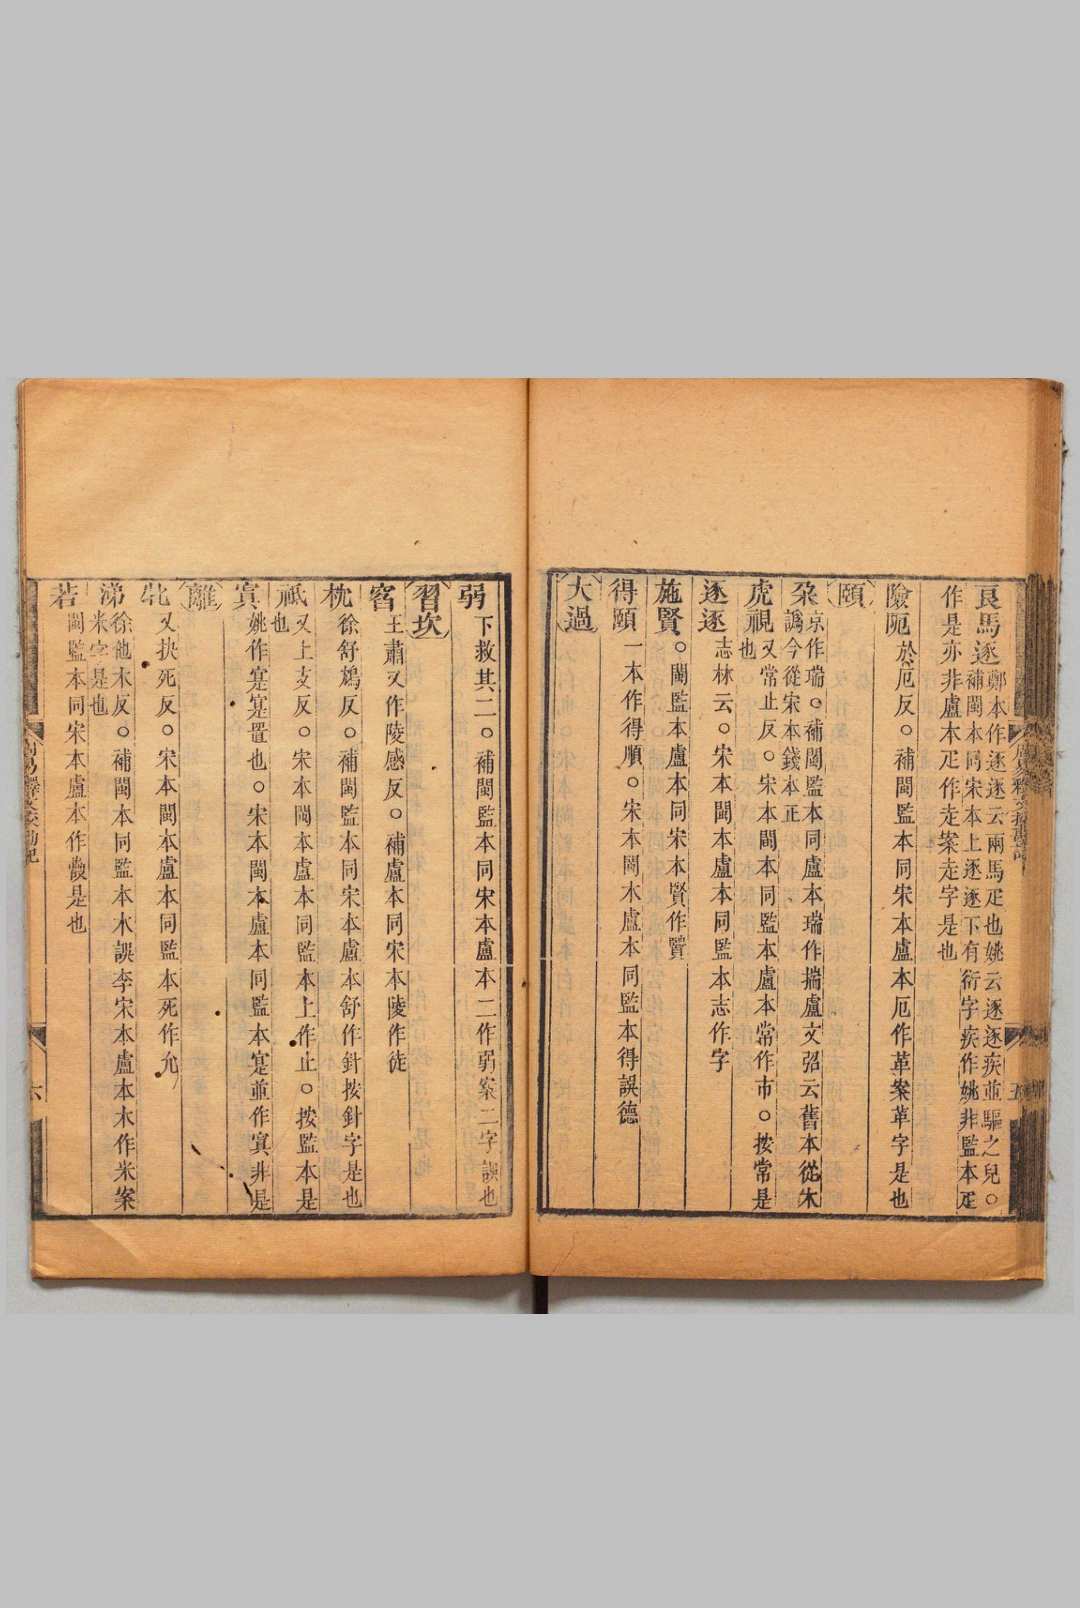 良馬逐鄭本作逐逐云兩馬疋也姚云逐逐疾並驅之皃○
補閩本同宋本上逐逐下有衍字疾作姚非監本疋
作是亦非盧本疋作走案走字是也
險阨於厄反○補閩監本同宋本盧本厄作革案革字是也
頤
朶京作瑞○補閩監本同盧本瑞作揣盧文弨云舊本從木
譌今從宋本錢本正
虎視又常止反○宋本閩本同監本盧本常作市○按常是
也
逐逐志林云○宋本閩本盧本同監本志作字
施賢○閩監本盧本同宋本賢作贒
得頤一本作得順○宋本閩本盧本同監本得誤德
大過
弱下救其二○補閩監本同宋本盧本二作弱案二字誤也
習坎
窞王肅又作陵感反○補盧本同宋本陵作徒
枕徐舒鴆反○補閩監本同宋本盧本舒作針按針字是也
祗又上支反○宋本閩本盧本同監本上作止○按監本是
也
寘姚作寔寔置也○宋本閩本盧本同監本寔並作寘非是
離
牝又抰死反○宋本閩本盧本同監本死作允
涕徐他木反○補閩本同監本木誤李宋本盧本木作米案
米字是也
若閩監本同宋本盧本作䬐是也
周易釋文挍勘記
六
五